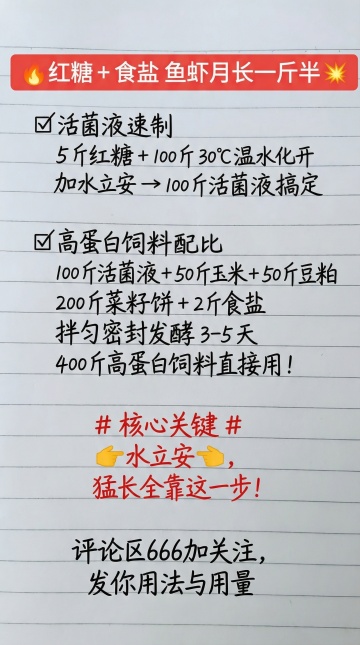 🔥红糖+食盐 鱼虾月长一斤半💥
☑活菌液速制
5斤红糖+100斤30℃温水化开
加水立安→100斤活菌液搞定
☑高蛋白饲料配比
100斤活菌液+50斤玉米+50斤豆粕
200斤菜籽饼+2斤食盐
拌匀密封发酵3-5天
400斤高蛋白饲料直接用!
#核心关键#
👉水立安👈,
猛长全靠这一步!
评论区666加关注,
发你用法与用量